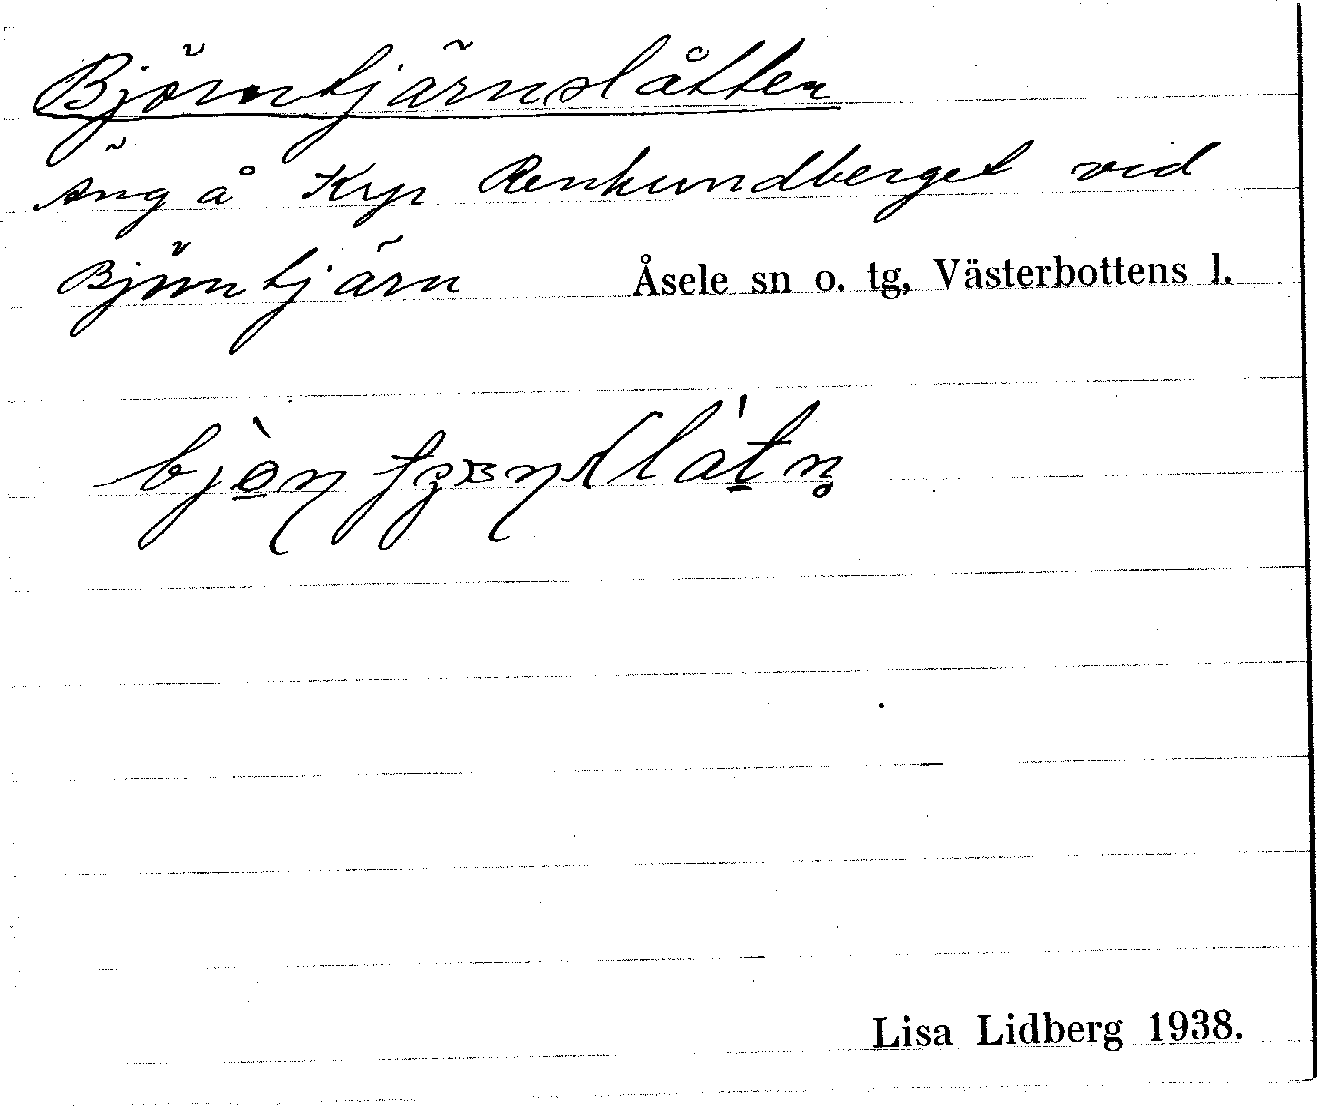 Björntjärnslåtten
Äng å Krp Renhundberget vid
Björntjärn Åsele sn o. tg, Västerbottens l.
Lisa Lidberg 1938.